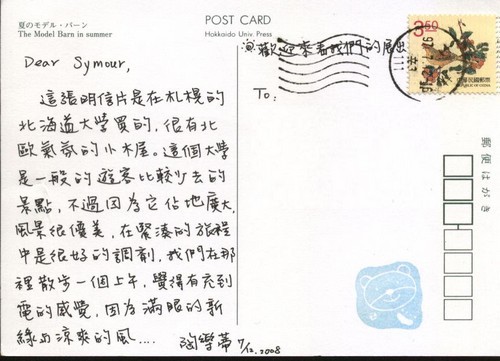 夏のモデル・バーン
The Model Barn in summer
POST CARD
Hokkaido Univ. Press
歡迎來看我們的展出
3.50
中華民國郵票
REPUBLIC OF CHINA
Dear Symour,
To:
這張明信片是在札幌的
北海道大學買的,很有北
歐氣氛的小木屋。這個大學
是一般的遊客比較少去的
景點,不過因為它佔地廣大,
風景很優美,在緊湊的旅程
中是很好的調劑,我們在那
裡散步一個上午,覺得有充到
電的感覺,因為滿眼的新
綠与涼爽的風....
7/12.2008
郵便はがき